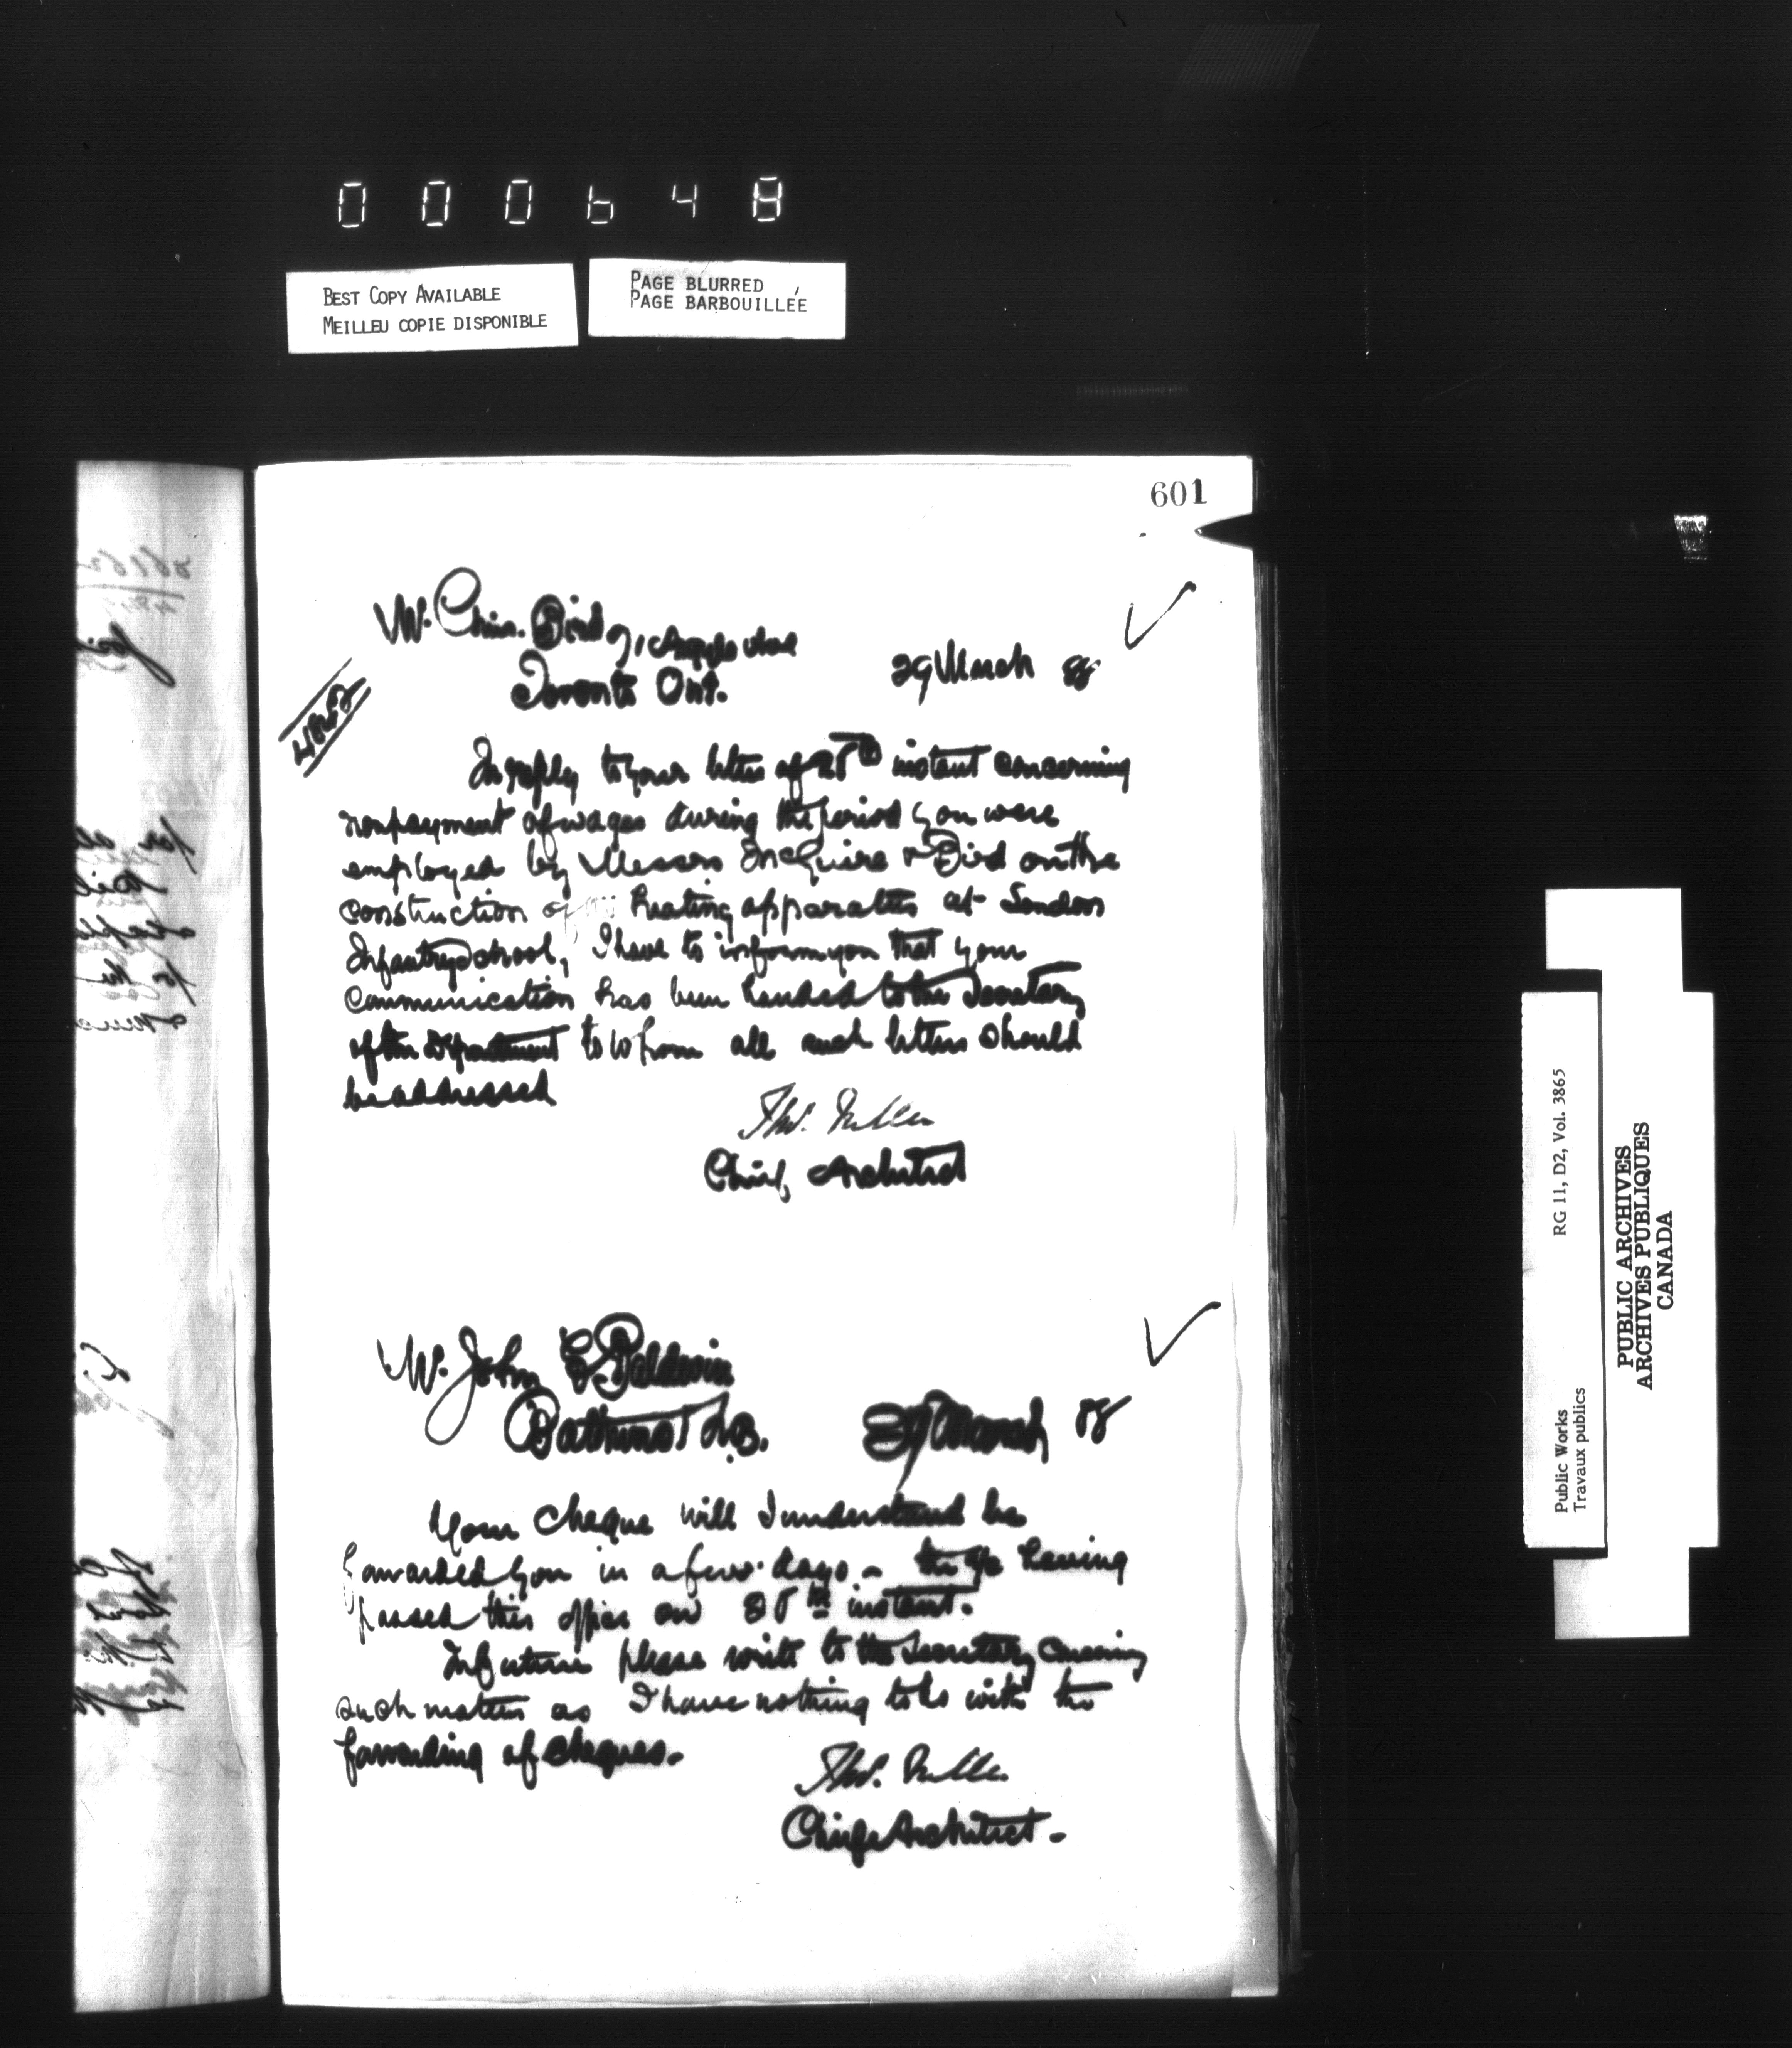 000648
BEST COPY AVAILABLE
MEILLEU COPIE DISPONIBLE
PAGE BLURRED
PAGE BARBOUILLÉE
601
Bird
Toronto Ont.
29 March 88
In reply to your letter of 28th instant concerning
nonpayment of wages during the period you were
employed by Messrs McGuire & Bird on the
construction of heating apparatus at London
Infantry School, I have to inform you that your
communication has been handed to the Secretary
of the Department to whom all such letters should
be addressed
Thos. Fuller
Chief Architect
M. John E Baldwin
Bathurst N.B.
29 March 88
Your cheque will I understand be
forwarded you in a few days - the a/c having
passed this office on 28th instant.
In future please write to the Secretary
such matters as I have nothing to do with the
forwarding of cheques.
Thos. Fuller
Chief Architect.
Public Works
Travaux publics
RG 11, D2, Vol. 3865
PUBLIC ARCHIVES
ARCHIVES PUBLIQUES
CANADA